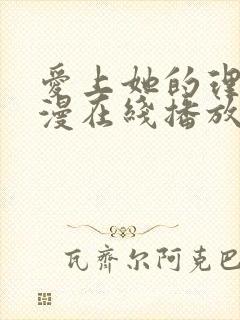 愛上她的理
漫在綫播放
瓦齊尔阿克巴